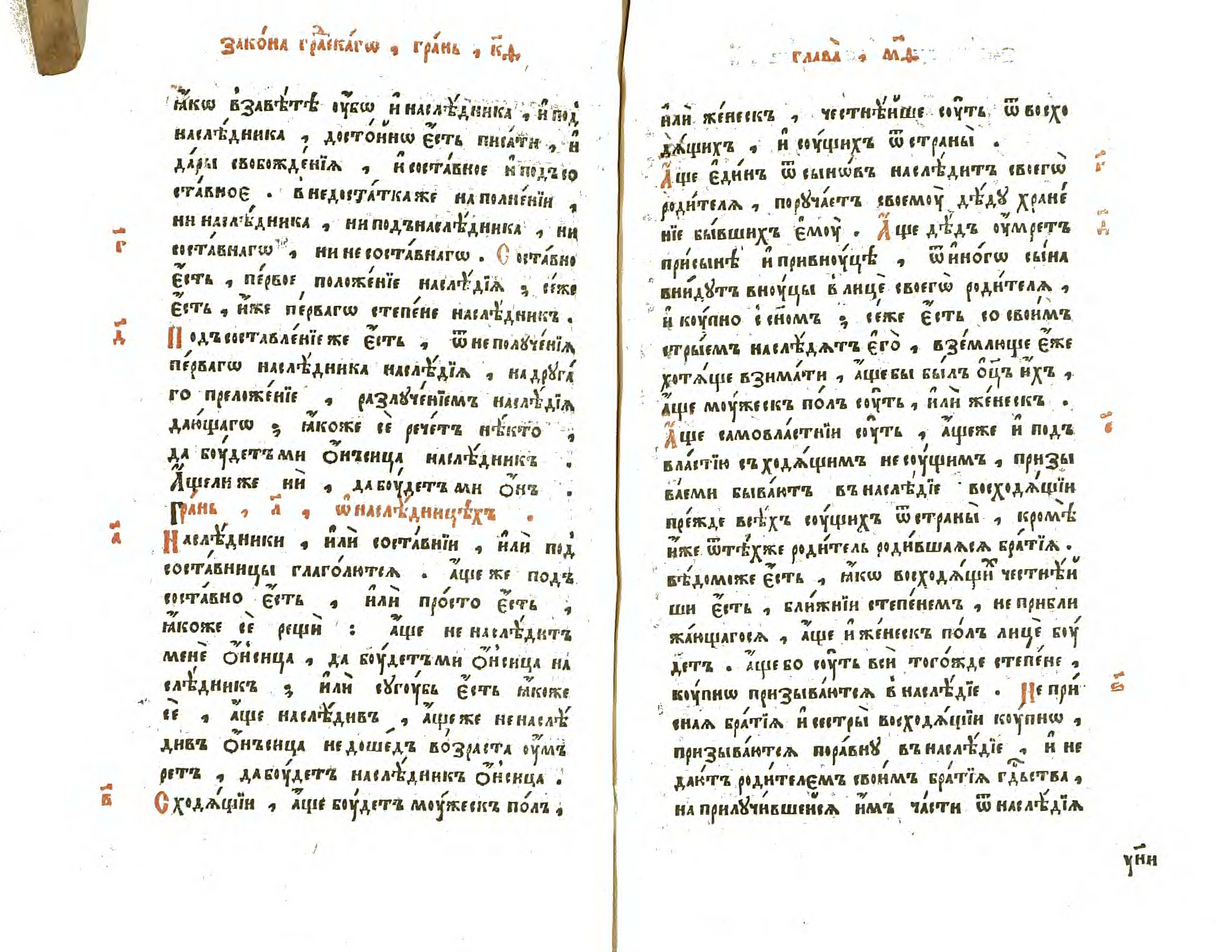 Зако́на гра́дскагѡ , гра́нь , к҃ѳ
ꙗ́кѡ взавѣ́тѣ ᲂу҆́бѡ и҆наслѣ́дника , и҆под
наслѣ́дника , досто́йнѡ є҆́сть писа́ти , и҆
да́ры свобожде́нїѧ , и҆соста́вное и҆подъсо
ста́вноє . внедоста́ткаже наполне́нїи ,
нинаслѣ́дника , ниподънаслѣ́дника , ни
соста́внагѡ , нинесоста́внагѡ . Соста́вно
г҃
є҆́сть , пе́рвое положе́нїе наслѣ́дїѧ ; се́же
є҆́сть , и҆́же пе́рвагѡ степе́не наслѣ́дникъ .
д҃
Подъсоставле́нїеже є҆́сть , ѿнеполуче́нїѧ
пе́рвагѡ наслѣ́дника наслѣ́дїѧ , надруга́
го преложе́нїе , разлуче́нїемъ наслѣ́дїѧ
даю́щагѡ ; ꙗ́коже сѐ рече́тъ нѣ́кто ,
да боу́детъми ѻ҆́нъсица наслѣ́дникъ .
А҆́щелиже нѝ , дабоу́детъми ѻ҆́нъ .
Гра́нь , л҃ , ѡ҆наслѣ́дницѣхъ .
а҃
Наслѣ́дники , и҆лѝ соста́внїи , и҆лѝ под
соста́вницы глаго́лютсѧ . а҆́ще же подъ
соста́вно є҆́сть , и҆лѝ про́сто є҆́сть ,
ꙗ́коже сѐ рещѝ : а҆́ще не наслѣ́дитъ
менѐ ѻ҆́нсица , да боу́детъми ѻ҆́нсица на
слѣ́дникъ ; и҆лѝ сугоу́бь є҆́сть ꙗ́коже
сѐ , а҆́ще наслѣ́дивъ , а҆́щеже ненаслѣ́
дивъ ѻ҆́нъсица недоше́дъ во́зраста ᲂу҆́мъ
ретъ , дабоу́детъ наслѣ́дникъ ѻ҆́нсица .
в҃
Сходѧ́щїи , а҆́ще боу́детъ моу́жескъ по́лъ ,
глава̀ , м҃ѳ
и҆лѝ же́нескъ , честнѣ́йше соу́ть ѿвосхо
дѧ́щихъ , и҆соу́щихъ ѿстраны̀ .
г҃
А҆́ще є҆ди́нъ ѿсынѡ́въ наслѣ́дитъ своегѡ̀
роди́телѧ , поруча́етъ своемоу̀ дѣ́ду хране́
д҃
нїе бы́вшихъ є҆моу̀ . А҆́ще дѣ́дъ ᲂу҆́мретъ
присы́нѣ и҆привноу́цѣ , ѿи҆но́гѡ сы́на
вни́дутъ вноу́цы влицѐ своегѡ̀ роди́телѧ ,
и҆ коу́пно с сн҃омъ ; се́же є҆́сть со свои́мъ
стры́емъ наслѣ́дѧтъ є҆го̀ , взе́млюще є҆́же
хотѧ́ще взима́ти , а҆́щебы бы́лъ ѻ҆ц҃ъ и҆́хъ ,
а҆́ще моу́жескъ по́лъ соу́ть , и҆лѝ же́нескъ .
є҃
А҆́ще самовла́стнїи соу́ть , а҆́щеже и҆ подъ
вла́стїю съходѧ́щимъ несоу́щимъ , призы
ва́еми быва́ютъ внаслѣ́дїе восходѧ́щїи
пре́жде всѣ́хъ соу́щихъ ѿстраны̀ , кромѣ̀
и҆́же ѿтѣ́хже роди́тель роди́вшаѧсѧ бра́тїѧ .
вѣ́доможе є҆́сть , ꙗ́кѡ восходѧ́щихъ честнѣ́й
ши є҆́сть , бли́жнїи степе́немъ , не прибли
жа́ющагосѧ , а҆́ще и҆же́нескъ по́лъ лицѐ боу́
детъ . а҆́ще бо соу́ть всѝ того́жде степе́не ,
ѕ҃
коу́пнѡ призыва́ютсѧ внаслѣ́дїе . Не при́
снаѧ бра́тїѧ и҆сестры̀ восходѧ́щїи коу́пнѡ ,
призыва́ютсѧ пора́вну внаслѣ́дїе , и҆ не
даю́тъ роди́телємъ свои́мъ бра́тїѧ гдⷭ҇ьства ,
на прилучи́вшейсѧ и҆̀мъ ча́сти ѿнаслѣ́дїѧ
ун҃и